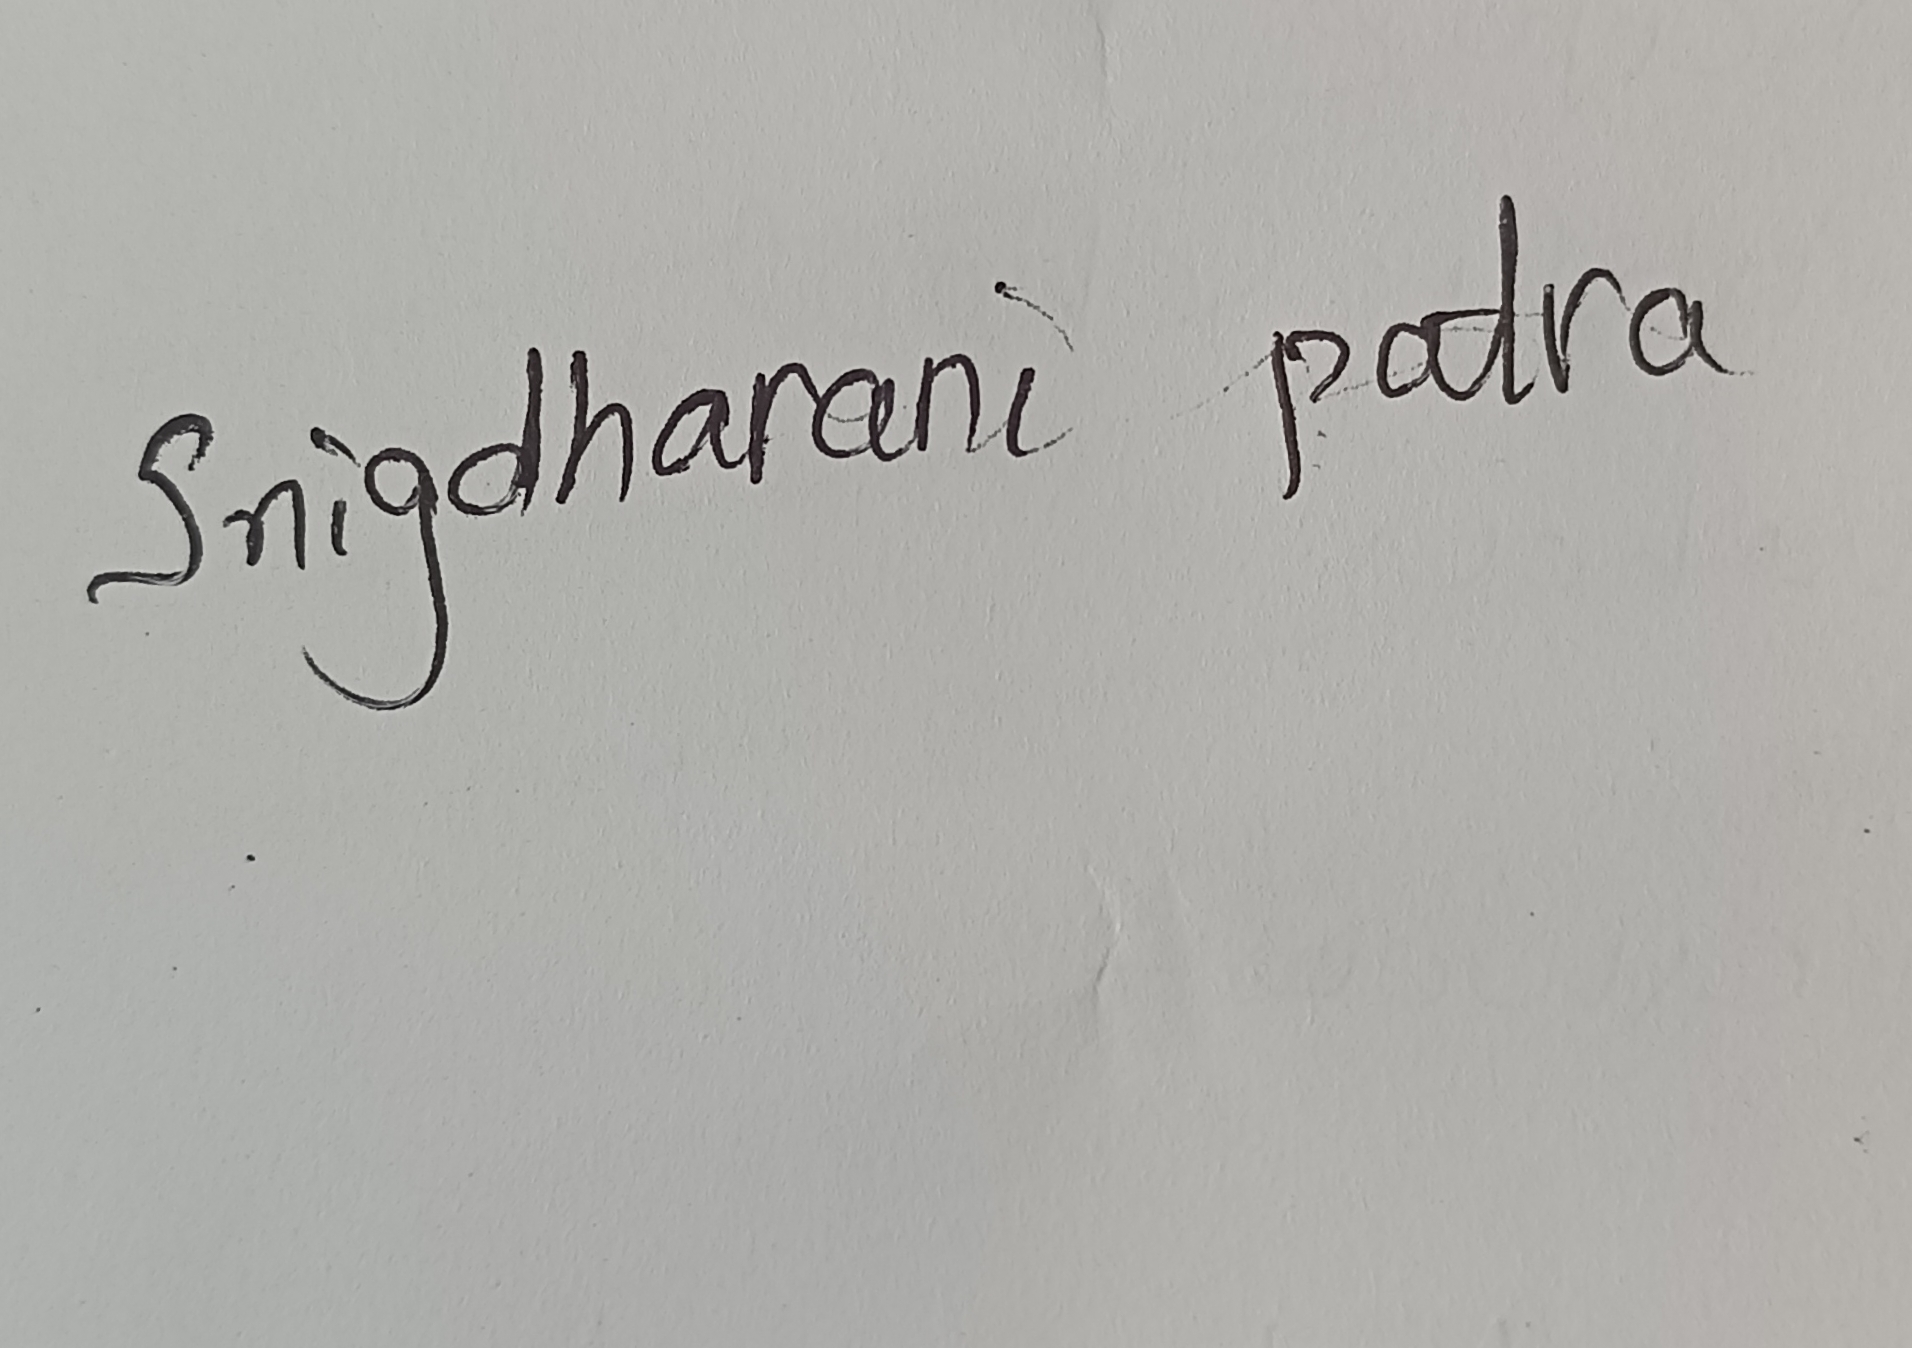 Snigdharani patra